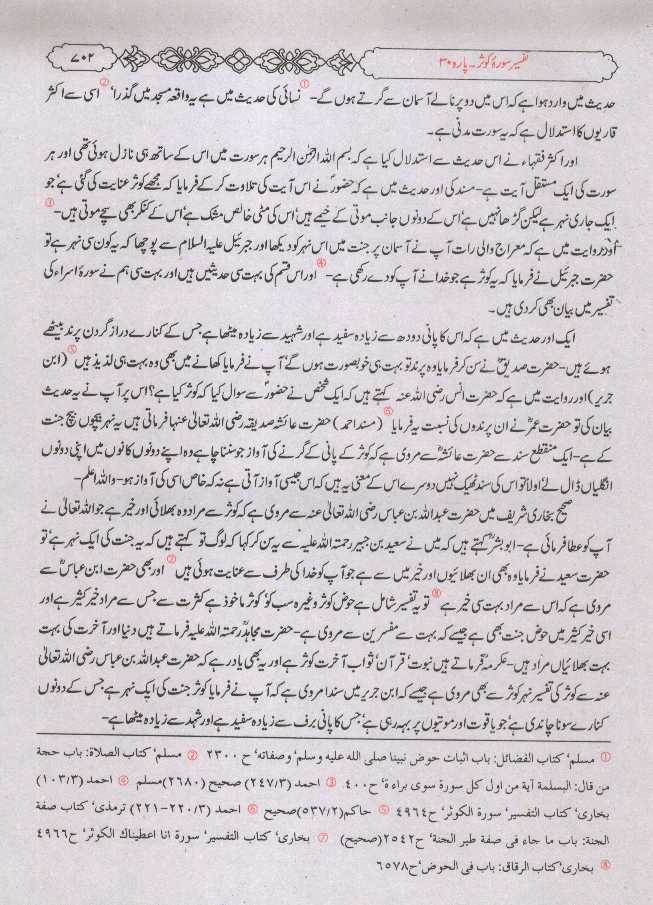 تفسیر سورۂ کوثر۔ پارہ ۳۰
۷۰۲
حدیث میں وارد ہوا ہے کہ اس میں دو پرنالے آسمان سے گرتے ہوں گے-① نسائی کی حدیث میں ہے یہ واقعہ مسجد میں گذرا'② اسی سے اکثر
قاریوں کا استدلال ہے کہ یہ سورت مدنی ہے۔
اور اکثر فقہاء نے اس حدیث سے استدلال کیا ہے کہ بسم اللہ الرحمٰن الرحیم ہر سورت میں اس کے ساتھ ہی نازل ہوئی تھی اور ہر
سورت کی ایک مستقل آیت ہے- مسند کی اور حدیث میں ہے کہ حضورؐ نے اس آیت کی تلاوت کر کے فرمایا کہ مجھے کوثر عنایت کی گئی ہے' جو
ایک جاری نہر ہے لیکن گڑھا نہیں ہے' اس کے دونوں جانب موتی کے خیمے ہیں' اس کی مٹی خالص مشک ہے' اس کے کنکر بھی سچے موتی ہیں-③
اور روایت میں ہے کہ معراج والی رات آپ نے آسمان پر جنت میں اس نہر کو دیکھا اور جبرئیل علیہ السلام سے پوچھا کہ یہ کون سی نہر ہے تو
حضرت جبرئیل نے فرمایا کہ یہ کوثر ہے جو خدا نے آپ کو دے رکھی ہے-④ اور اس قسم کی بہت سی حدیثیں ہیں اور بہت سی ہم نے سورۂ اسراء کی
تفسیر میں بیان بھی کر دی ہیں۔
ایک اور حدیث میں ہے کہ اس کا پانی دودھ سے زیادہ سفید ہے اور شہد سے زیادہ میٹھا ہے جس کے کنارے دراز گردن پرند بیٹھے
ہوئے ہیں- حضرت صدیقؓ نے سن کر فرمایا وہ پرند تو بہت ہی خوبصورت ہوں گے' آپ نے فرمایا کھانے میں بھی وہ بہت ہی لذیذ ہیں⑤ (ابن
جریر) اور روایت میں ہے کہ حضرت انس رضی اللہ عنہ کہتے ہیں کہ ایک شخص نے حضورؐ سے سوال کیا کہ کوثر کیا ہے؟ اس پر آپ نے یہ حدیث
بیان کی تو حضرت عمرؓ نے ان پرندوں کی نسبت یہ فرمایا⑥ (مسند احمد) حضرت عائشہ صدیقہ رضی اللہ تعالیٰ عنہا فرماتی ہیں یہ نہر بیچوں بیچ جنت
کے ہے- ایک منقطع سند سے حضرت عائشہؓ سے مروی ہے کہ کوثر کے پانی کے گرنے کی آواز جو سننا چاہے وہ اپنے دونوں کانوں میں اپنی دونوں
انگلیاں ڈال لے' اولاً تو اس کی سند ٹھیک نہیں دوسرے اس کے معنی یہ ہیں کہ اس جیسی آواز آتی ہے نہ کہ خاص اسی کی آواز ہو- واللہ اعلم-
صحیح بخاری شریف میں حضرت عبداللہ بن عباس رضی اللہ تعالیٰ عنہ سے مروی ہے کہ کوثر سے مراد وہ بھلائی اور خیر ہے جو اللہ تعالیٰ نے
آپ کو عطا فرمائی ہے- ابو بشرؒ کہتے ہیں کہ میں نے سعید بن جبیر رحمتہ اللہ علیہ سے یہ سن کر کہا کہ لوگ تو کہتے ہیں کہ یہ جنت کی ایک نہر ہے' تو
حضرت سعید نے فرمایا وہ بھی ان بھلائیوں اور خیر میں سے ہے جو آپ کو خدا کی طرف سے عنایت ہوئی ہیں⑦ اور بھی حضرت ابن عباسؓ سے
مروی ہے کہ اس سے مراد بہت سی خیر ہے⑧ تو یہ تفسیر شامل ہے حوض کوثر وغیرہ سب کو' کوثر ماخوذ ہے کثرت سے جس سے مراد خیر کثیر ہے اور
اسی خیر کثیر میں حوض جنت بھی ہے جیسے کہ بہت سے مفسرین سے مروی ہے- حضرت مجاہد رحمتہ اللہ علیہ فرماتے ہیں دنیا اور آخرت کی بہت
بہت بھلائیاں مراد ہیں- عکرمہؒ فرماتے ہیں نبوت' قرآن' ثواب آخرت کوثر ہے اور یہ بھی یاد رہے کہ حضرت عبداللہ بن عباس رضی اللہ تعالیٰ
عنہ سے کوثر کی تفسیر نہر کوثر سے بھی مروی ہے جیسے کہ ابن جریر میں سنداً مروی ہے کہ آپ نے فرمایا کوثر جنت کی ایک نہر ہے جس کے دونوں
کنارے سونا چاندی ہے' جو یاقوت اور موتیوں پر بہہ رہی ہے' جس کا پانی برف سے زیادہ سفید ہے اور شہد سے زیادہ میٹھا ہے-
① مسلم' کتاب الفضائل: باب اثبات حوض نبینا صلی اللہ علیہ وسلم' وصفاتہ' ح ۲۳۰۰ ② مسلم' کتاب الصلاة: باب حجة
من قال: البسملة آیة من اول کل سورة سوی براءة' ح۴۰۰ ③ احمد (۲۴۷/۳) صحیح (۲۶۸۰)مسلم ④ احمد (۱۰۳/۳)
بخاری' کتاب التفسیر' سورة الکوثر' ح۴۹۶۴ ⑤ حاکم(۵۳۷/۲)صحیح ⑥ احمد (۲۲۰/۳-۲۲۱) ترمذی' کتاب صفة
الجنة: باب ما جاء فی صفة طیر الجنة' ح۲۵۴۲(صحیح) ⑦ بخاری' کتاب التفسیر' سورة انا اعطیناک الکوثر' ح ۴۹۶۶
⑧ بخاری' کتاب الرقاق: باب فی الحوض' ح۶۵۷۸